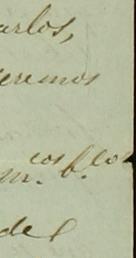 arlos,
eremos
m.cos f.los
del